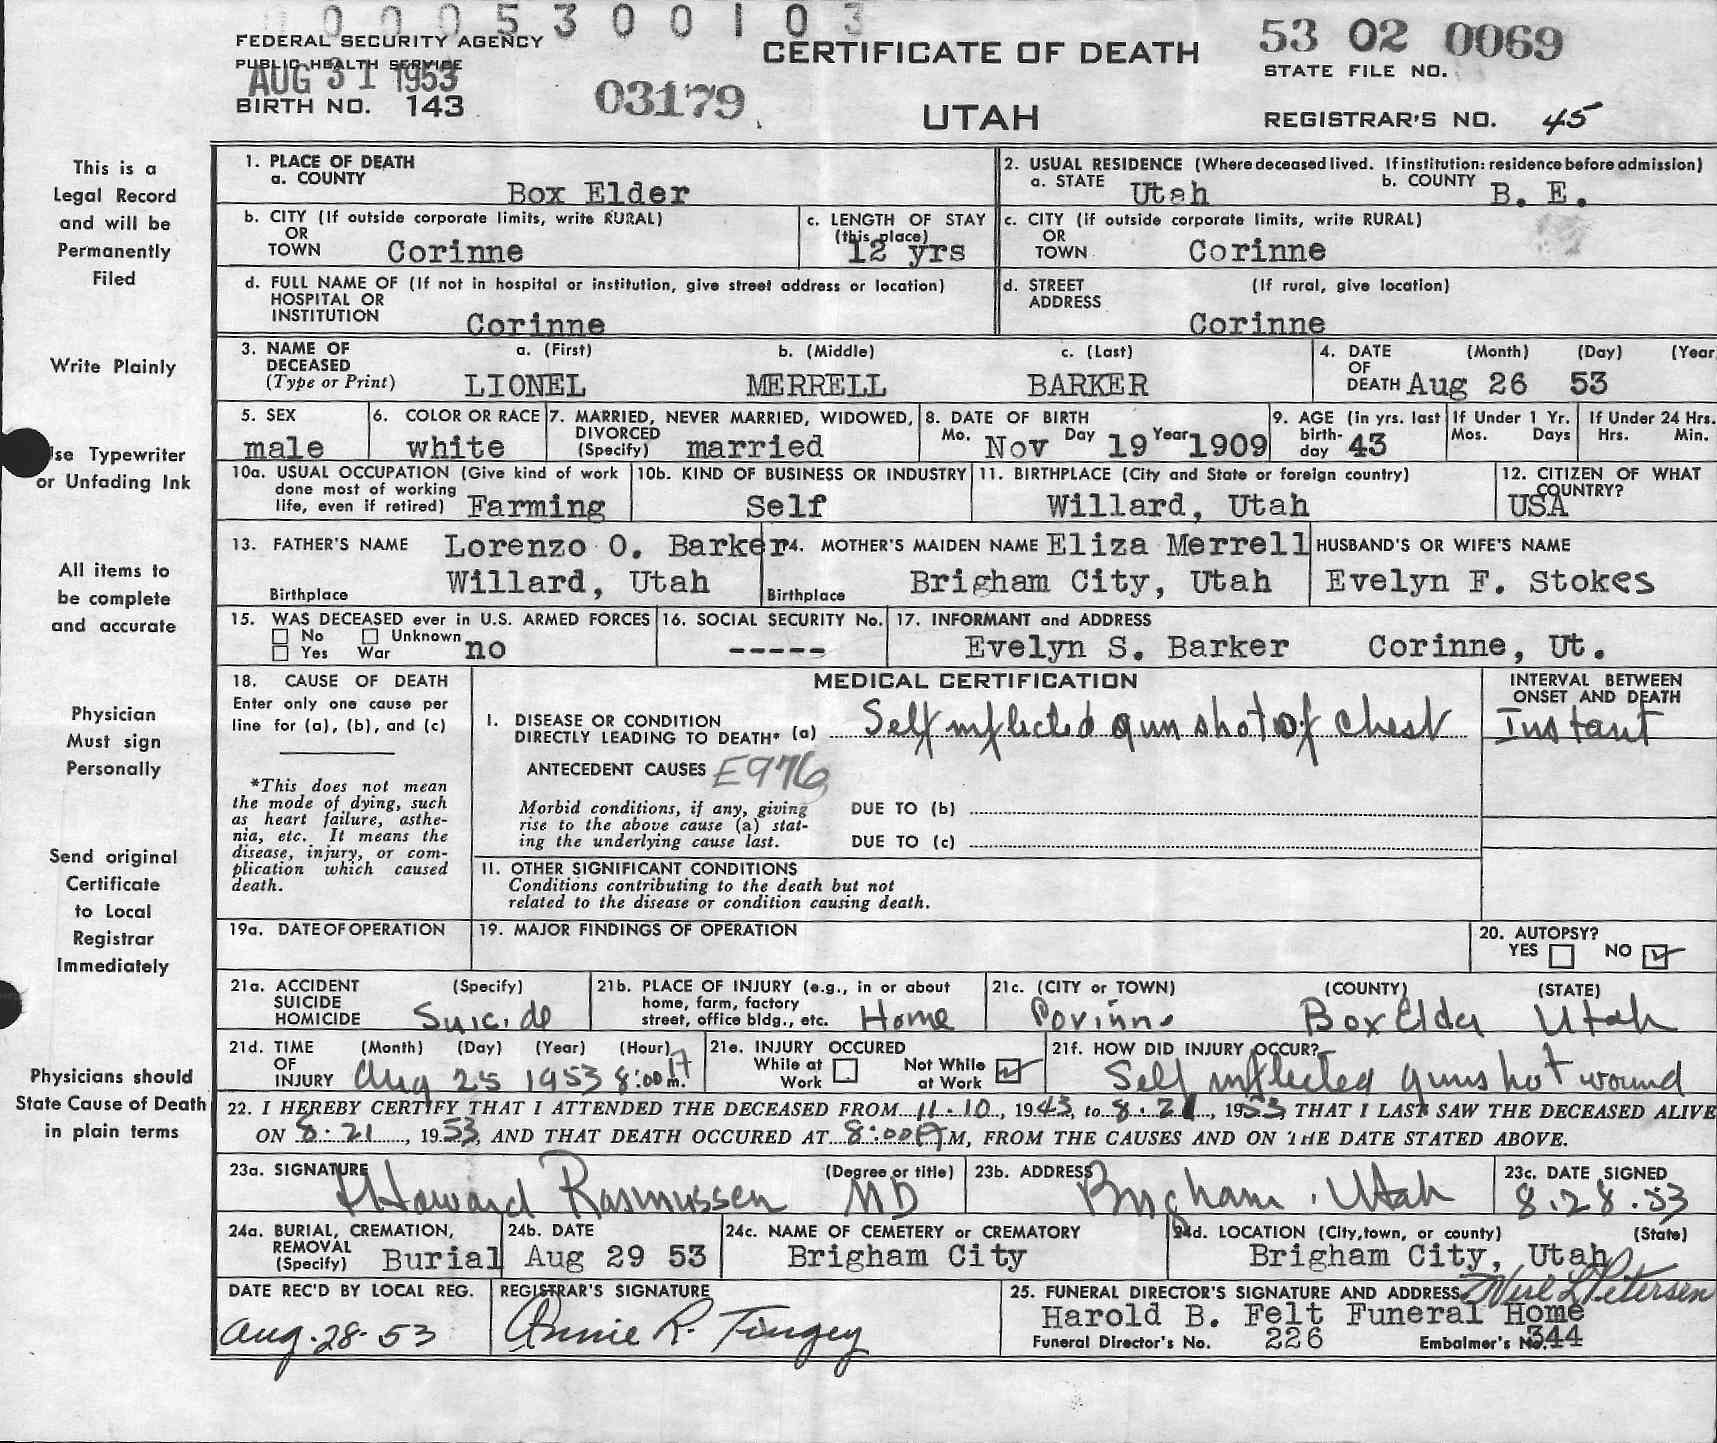 0 0 0 0 5 3 0 0 1 0 3
FEDERAL SECURITY AGENCY
PUBLIC HEALTH SERVICE
AUG 31 1953
BIRTH NO. 143
03179
CERTIFICATE OF DEATH
UTAH
53 02 0069
STATE FILE NO.
REGISTRAR'S NO. 45
This is a
Legal Record
and will be
Permanently
Filed
Write Plainly
Use Typewriter
or Unfading Ink
All items to
be complete
and accurate
Physician
Must sign
Personally
Send original
Certificate
to Local
Registrar
Immediately
Physicians should
State Cause of Death
in plain terms
1. PLACE OF DEATH
a. COUNTY Box Elder
2. USUAL RESIDENCE (Where deceased lived. If institution: residence before admission)
a. STATE Utah b. COUNTY B. E.
b. CITY (If outside corporate limits, write RURAL)
OR
TOWN Corinne
c. LENGTH OF STAY
(this place)
12 yrs
c. CITY (if outside corporate limits, write RURAL)
OR
TOWN Corinne
d. FULL NAME OF (If not in hospital or institution, give street address or location)
HOSPITAL OR
INSTITUTION Corinne
d. STREET (If rural, give location)
ADDRESS
Corinne
3. NAME OF a. (First) b. (Middle) c. (Last)
DECEASED
(Type or Print) LIONEL MERRELL BARKER
4. DATE (Month) (Day) (Year
OF
DEATH Aug 26 53
5. SEX
male
6. COLOR OR RACE
white
7. MARRIED, NEVER MARRIED, WIDOWED,
DIVORCED
(Specify) married
8. DATE OF BIRTH
Mo. Nov Day 19 Year 1909
9. AGE (in yrs. last
birth-
day 43
If Under 1 Yr.
Mos. Days
If Under 24 Hrs.
Hrs. Min.
10a. USUAL OCCUPATION (Give kind of work
done most of working
life, even if retired) Farming
10b. KIND OF BUSINESS OR INDUSTRY
Self
11. BIRTHPLACE (City and State or foreign country)
Willard, Utah
12. CITIZEN OF WHAT
COUNTRY?
USA
13. FATHER'S NAME Lorenzo O. Barker
Birthplace Willard, Utah
14. MOTHER'S MAIDEN NAME Eliza Merrell
Birthplace Brigham City, Utah
HUSBAND'S OR WIFE'S NAME
Evelyn F. Stokes
15. WAS DECEASED ever in U.S. ARMED FORCES
No Unknown
Yes War no
16. SOCIAL SECURITY No.
-----
17. INFORMANT and ADDRESS
Evelyn S. Barker Corinne, Ut.
18. CAUSE OF DEATH
Enter only one cause per
line for (a), (b), and (c)
*This does not mean
the mode of dying, such
as heart failure, asthe-
nia, etc. It means the
disease, injury, or com-
plication which caused
death.
MEDICAL CERTIFICATION
I. DISEASE OR CONDITION
DIRECTLY LEADING TO DEATH* (a) Self inflicted gun shot of chest
ANTECEDENT CAUSES E976
Morbid conditions, if any, giving
rise to the above cause (a) stat-
ing the underlying cause last.
DUE TO (b)
DUE TO (c)
INTERVAL BETWEEN
ONSET AND DEATH
Instant
II. OTHER SIGNIFICANT CONDITIONS
Conditions contributing to the death but not
related to the disease or condition causing death.
19a. DATE OF OPERATION
19. MAJOR FINDINGS OF OPERATION
20. AUTOPSY?
YES NO
21a. ACCIDENT (Specify)
SUICIDE
HOMICIDE Suicide
21b. PLACE OF INJURY (e.g., in or about
home, farm, factory
street, office bldg., etc. Home
21c. (CITY or TOWN) (COUNTY) (STATE)
Corinne Box Elder Utah
21d. TIME (Month) (Day) (Year) (Hour)
OF
INJURY Aug 25 1953 8:00 m.
21e. INJURY OCCURED
While at Not While
Work at Work
21f. HOW DID INJURY OCCUR?
Self inflected gunshot wound
22. I HEREBY CERTIFY THAT I ATTENDED THE DECEASED FROM 11-10, 1943, to 8-21, 1953, THAT I LAST SAW THE DECEASED ALIVE
ON 8-21, 1953, AND THAT DEATH OCCURED AT 8:00 A M, FROM THE CAUSES AND ON THE DATE STATED ABOVE.
23a. SIGNATURE (Degree or title)
Howard Rasmussen MD
23b. ADDRESS
Brigham, Utah
23c. DATE SIGNED
8.28.53
24a. BURIAL, CREMATION,
REMOVAL
(Specify) Burial
24b. DATE
Aug 29 53
24c. NAME OF CEMETERY or CREMATORY
Brigham City
24d. LOCATION (City, town, or county) (State)
Brigham City, Utah
DATE REC'D BY LOCAL REG.
Aug. 28-53
REGISTRAR'S SIGNATURE
Annie R. Tingey
25. FUNERAL DIRECTOR'S SIGNATURE AND ADDRESS
Petersen
Harold B. Felt Funeral Home
Funeral Director's No. 226 Embalmer's No. 344